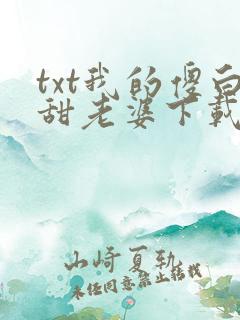 txt我的傻白
甜老婆下载
山崎夏轨
未经同意禁止转载